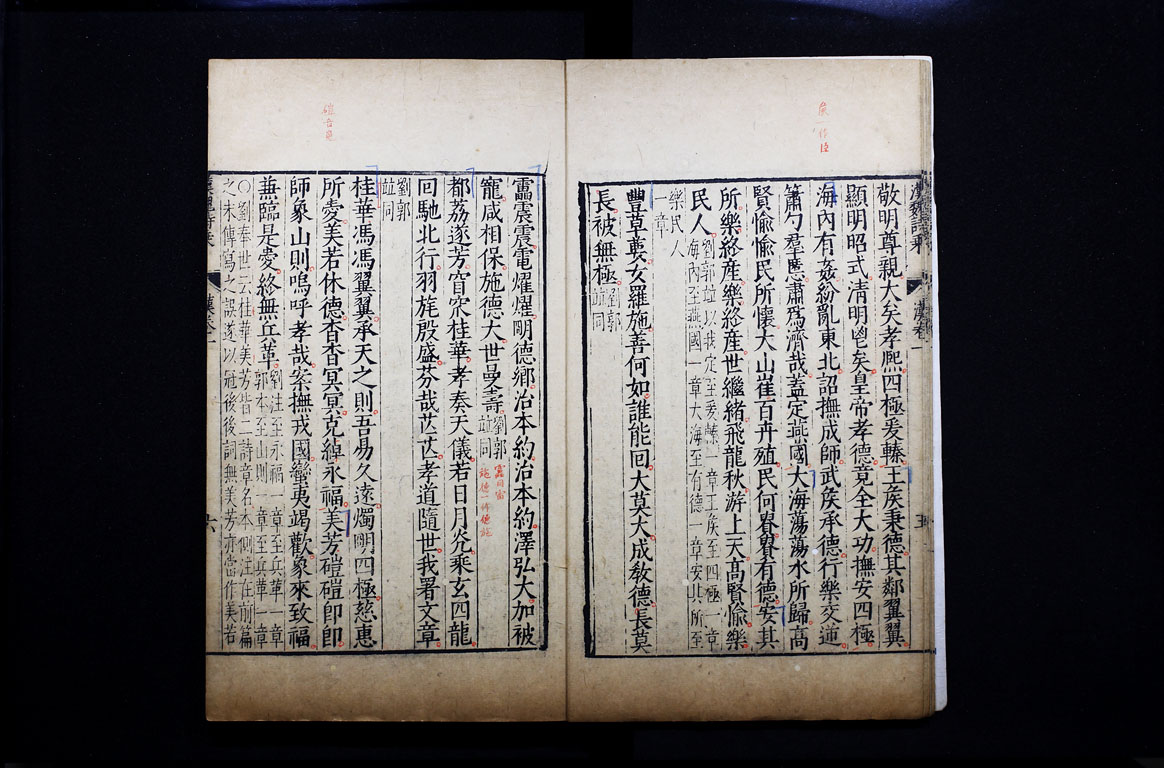 敬明尊親大矣孝熙四極爰轃王矦秉德其鄰翼翼
顯明昭式清明鬯矣皇帝孝德竟全大功撫安四極
海內有姦紛亂東北詔撫成師武矦承德行樂交逆
簫勺羣慝肅爲濟哉蓋定燕國大海蕩蕩水所歸高
賢愉愉民所懷大山崔百卉殖民何貴貴有德安其
所樂終産樂終産世繼緒飛龍秋游上天高賢愉樂
民人劉郭竝以我定至爰轃一章王矦至四極一章
海內至燕國一章大海至有德一章安其所至
樂民人
一章
豐草葽女羅施善何如誰能回大莫大成敎德長莫
長被無極劉郭
竝同
五
靁震震電燿燿明德鄉治本約治本約澤弘大加被
寵咸相保施德大世曼壽劉郭
竝同
都荔遂芳窅窊桂華孝奏天儀若日月光乘玄四龍
回馳北行羽旄殷盛芬哉芒芒孝道隨世我署文章
劉郭
竝同
桂華馮馮翼翼承天之則吾易久遠燭明四極慈惠
所愛美若休德杳杳冥冥克綽永福美芳磑磑即即
師象山則嗚呼孝哉案撫戎國蠻夷竭歡象來致福
兼臨是愛終無兵革劉注至永福一章至兵革一章
郭本至山則一章至兵革一章
○劉奉世云桂華美芳皆二詩章名本側注在前篇
之末傳寫之誤遂以冠後後詞無美芳亦當作美若
六